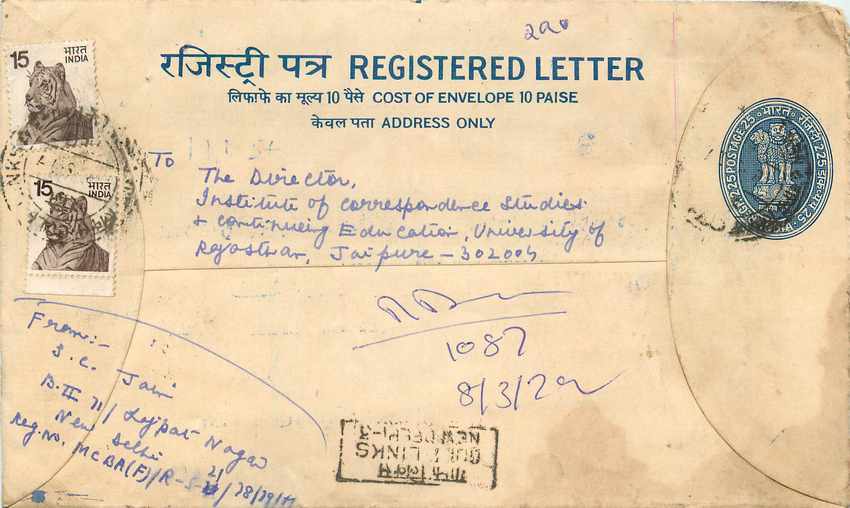 220
15 भारत
INDIA
15 भारत
INDIA
रजिस्ट्री पत्र REGISTERED LETTER
लिफाफे का मूल्य 10 पैसे COST OF ENVELOPE 10 PAISE
केवल पता ADDRESS ONLY
भारत INDIA POSTAGE 25 REGN 225
To
The Director,
Institute of correspondence Studies
& continuing Education, University of
Rajasthan, Jaipure - 302004
1087
From:-
S. C. Jain
B. III 71/ Lajpat Nagar
New Delhi
Reg. No. MCBA(F)/R-S-
GOLF LINKS
NEW DELHI-3